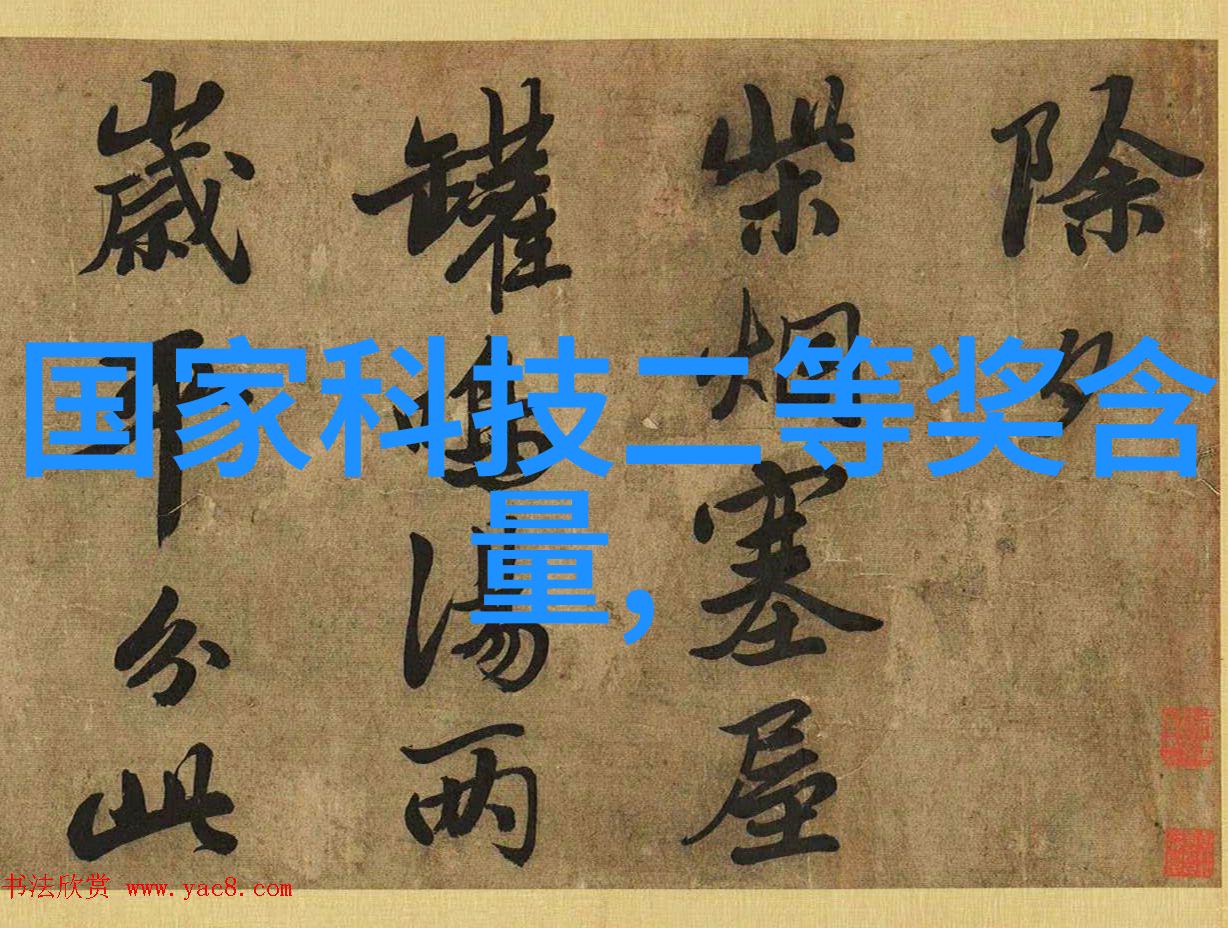 国家科技二等奖含
量,
除夕
柴烟塞屋
罐湯兩
歲分此
书法欣赏 www.yac8.com